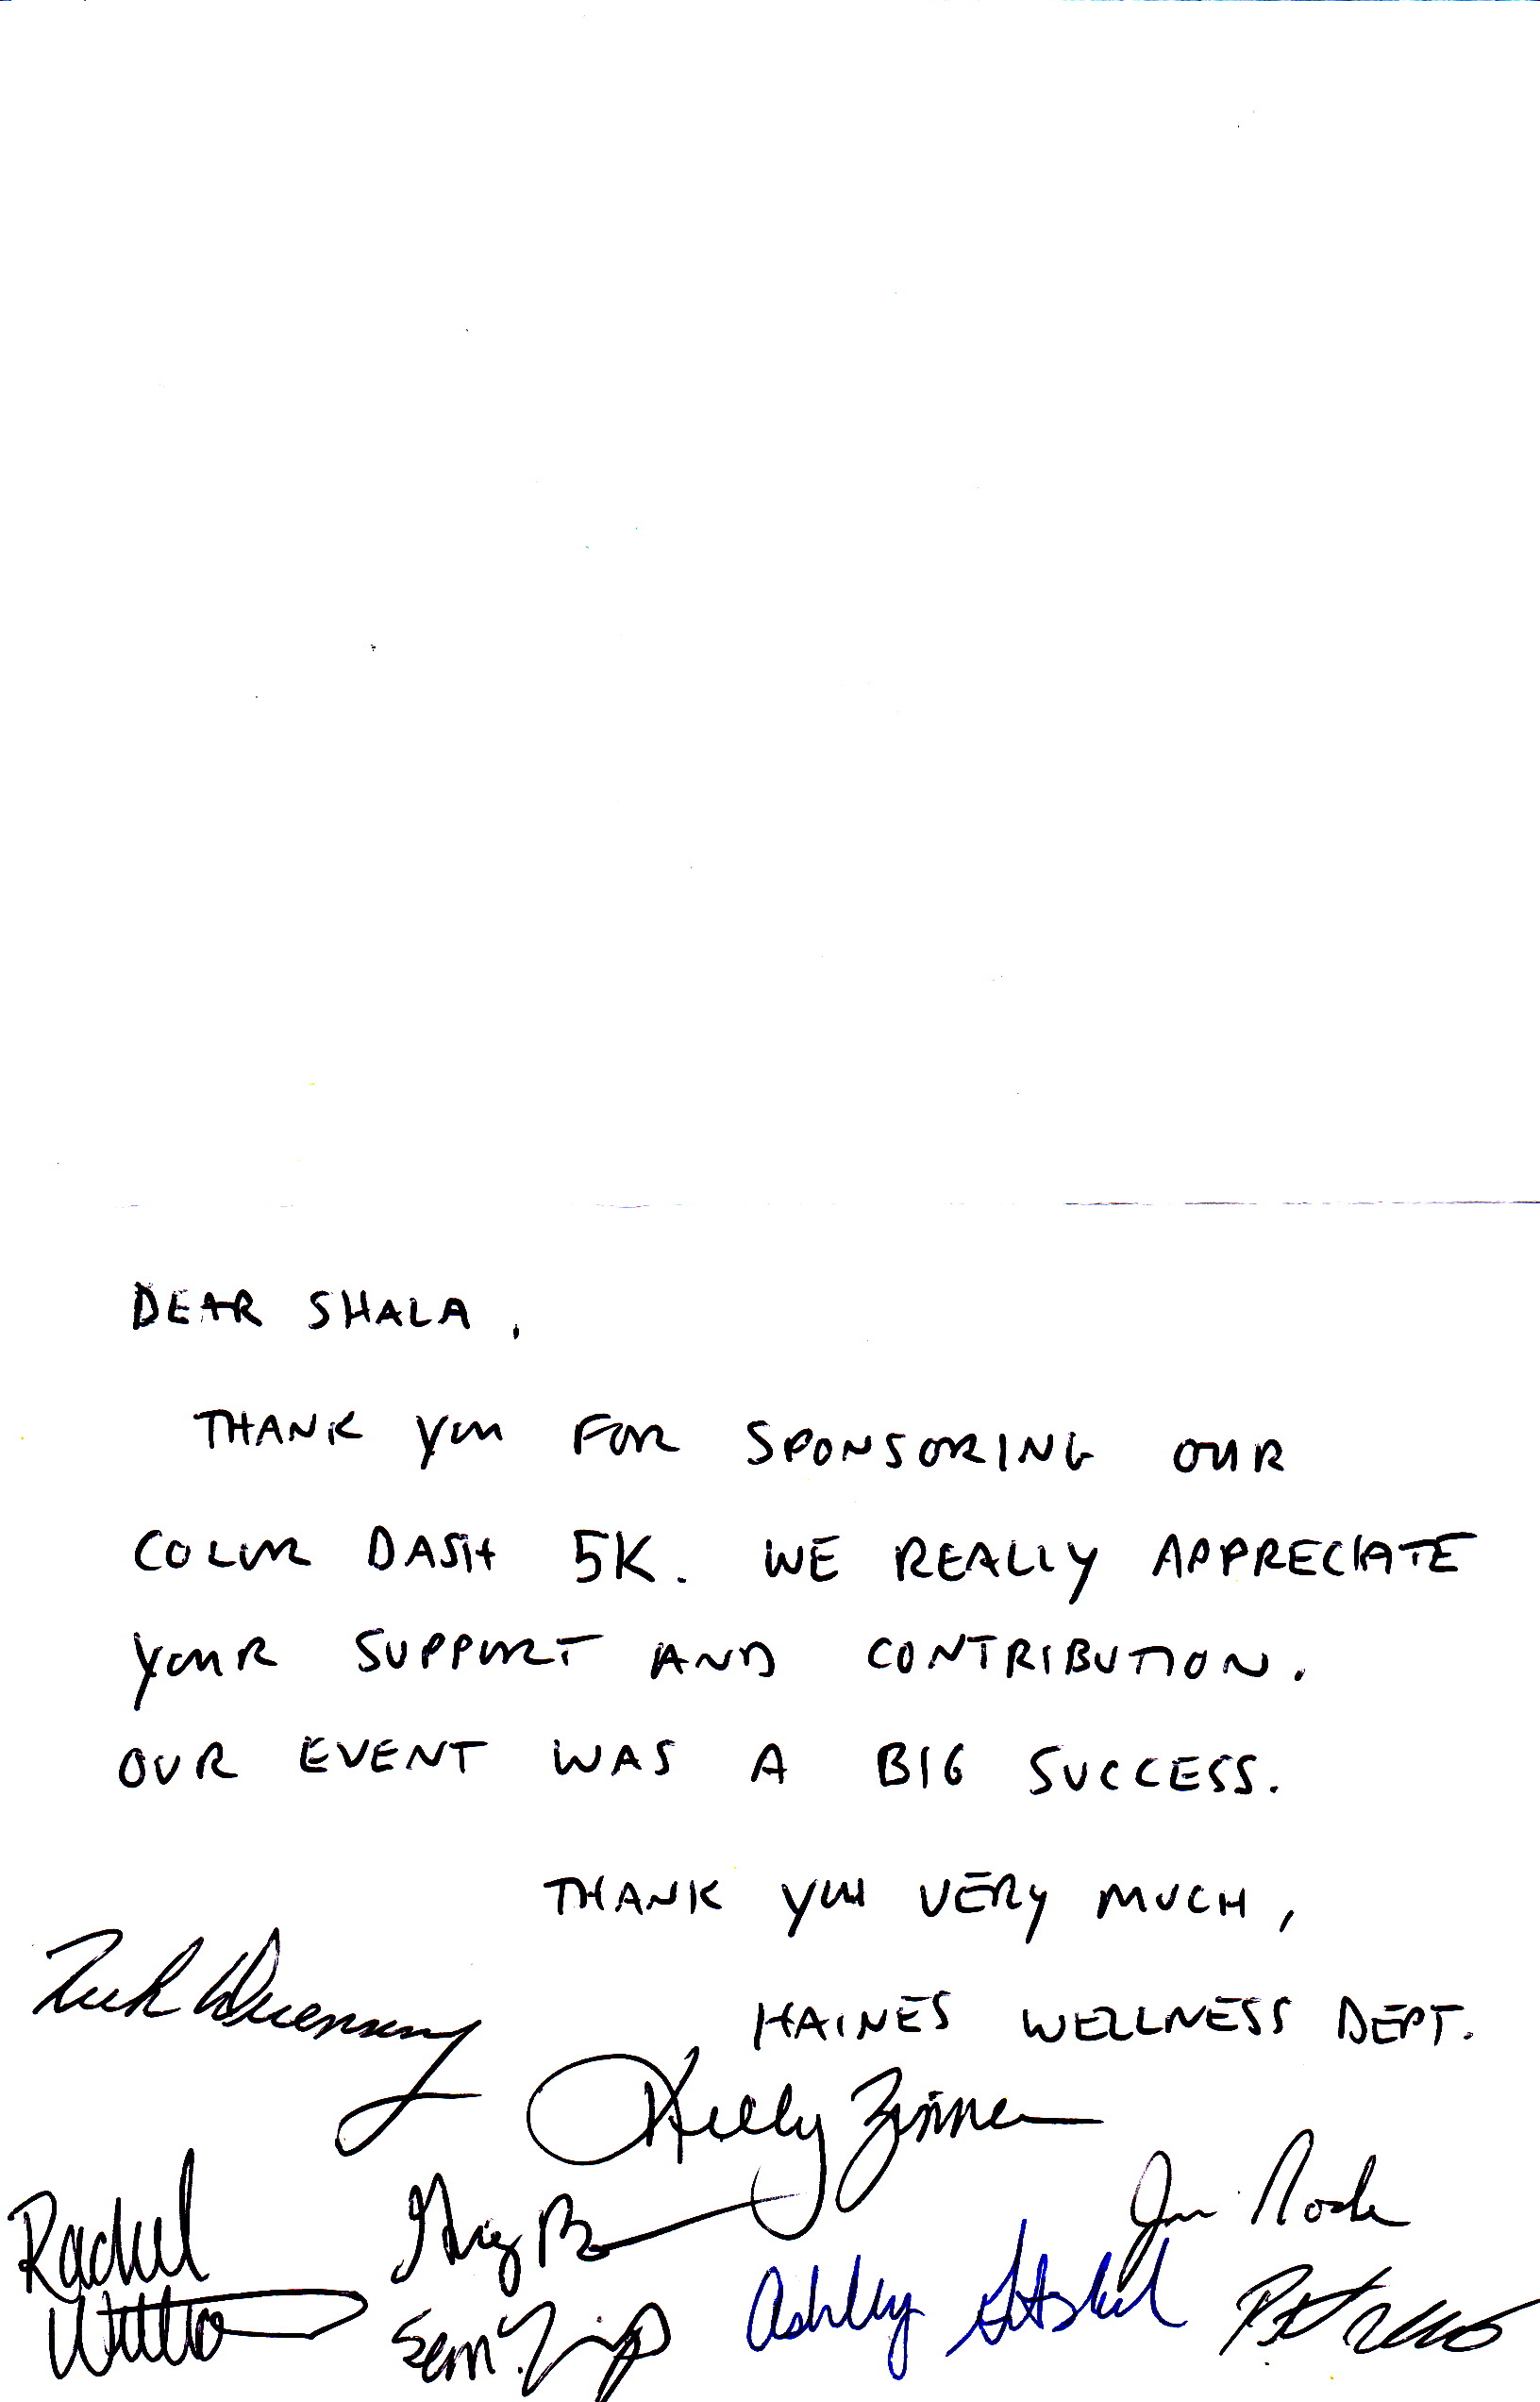 DEAR SHALA,
THANK YOU FOR SPONSORING OUR
COLOR DASH 5K. WE REALLY APPRECIATE
YOUR SUPPORT AND CONTRIBUTION.
OUR EVENT WAS A BIG SUCCESS.
THANK YOU VERY MUCH,
HAINES WELLNESS DEPT.
Kelly Zimmer
Rachel
Greg
Sean
Ashley